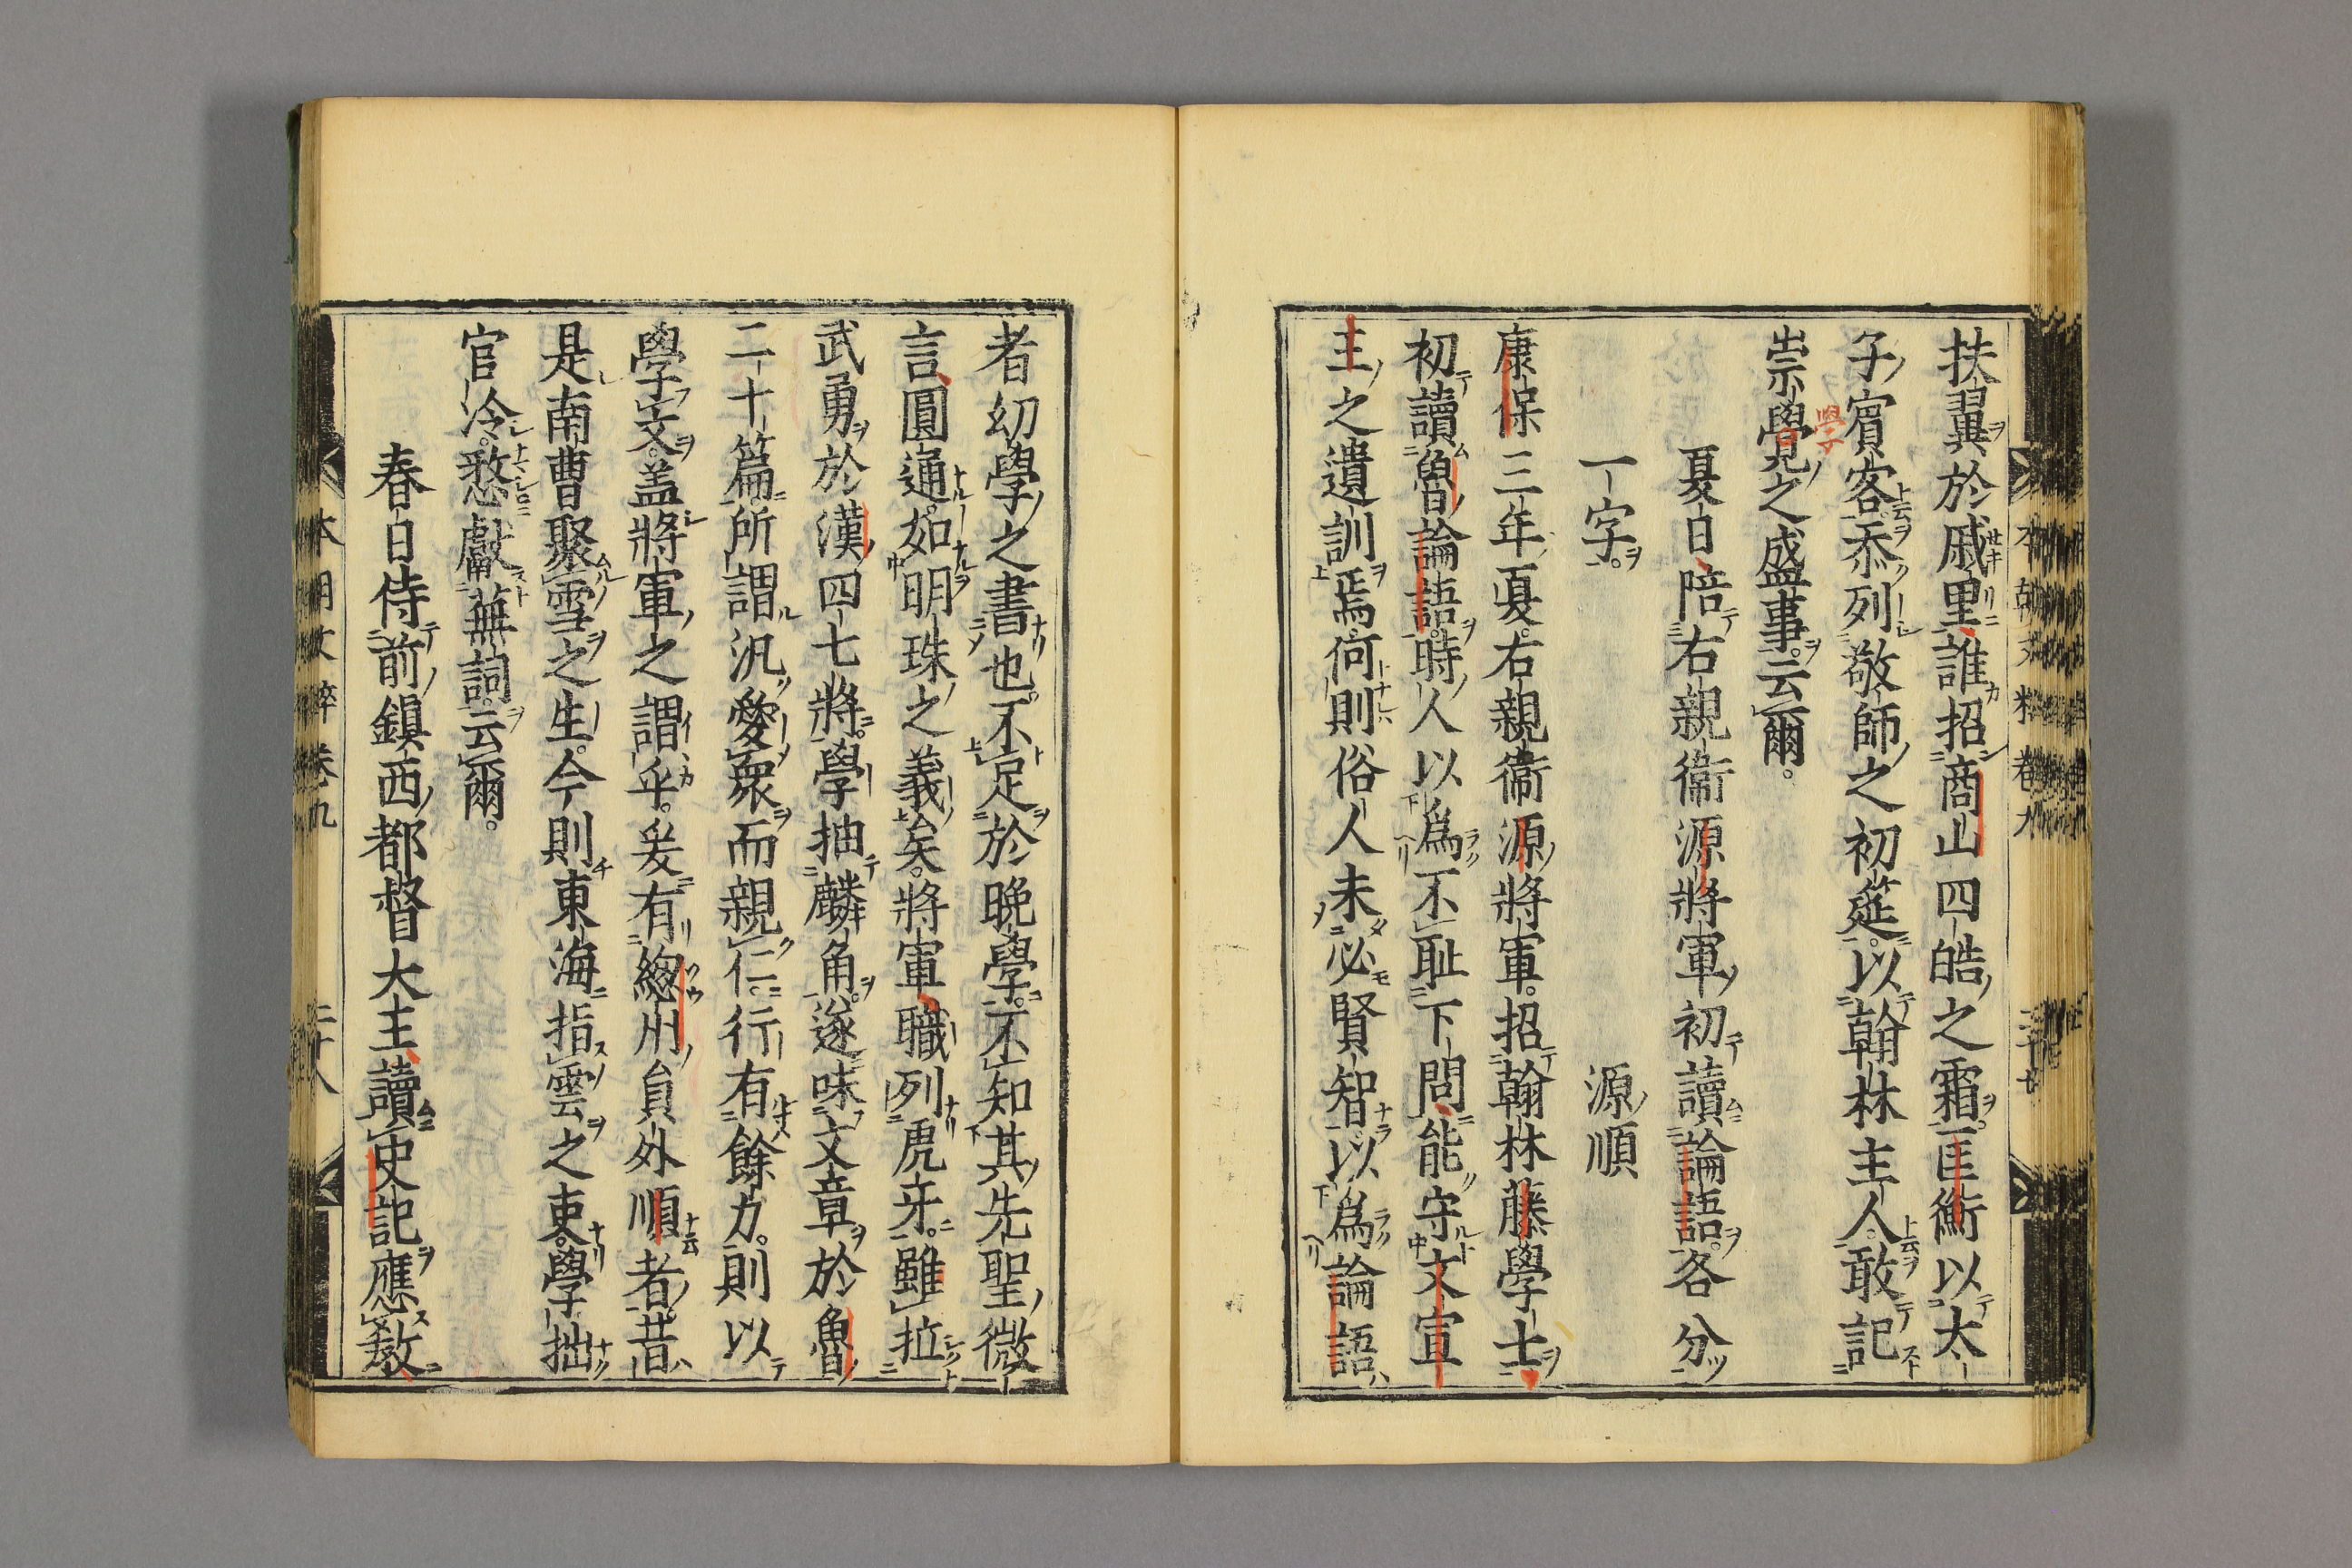 扶翼於戚里誰招商山四皓之霜匡衡以太
子賓客忝列敬師之初筵以翰林主人敢記
崇學見之盛事云爾
學
夏日陪右親衞源將軍初讀論語各分
一字
源順
康保三年夏右親衞源將軍招翰林藤學士
初讀魯論語時人以爲不恥下問能守文宣
王之遺訓焉何則俗人未必賢智以爲論語
者幼學之書也不足於晚學不知其先聖微
言圓通如明珠之義矣將軍職列虎牙雖拉
武勇於漢四七將學抽麟角遂味文章於魯
二十篇所謂汎愛衆而親仁行有餘力則以
學文蓋將軍之謂乎爰有總州員外順者昔
是南曹聚雪之生今則東海指雲之吏學拙
官冷愁獻蕪詞云爾
春日侍前鎭西都督大王讀史記應教
本朝文粹卷九